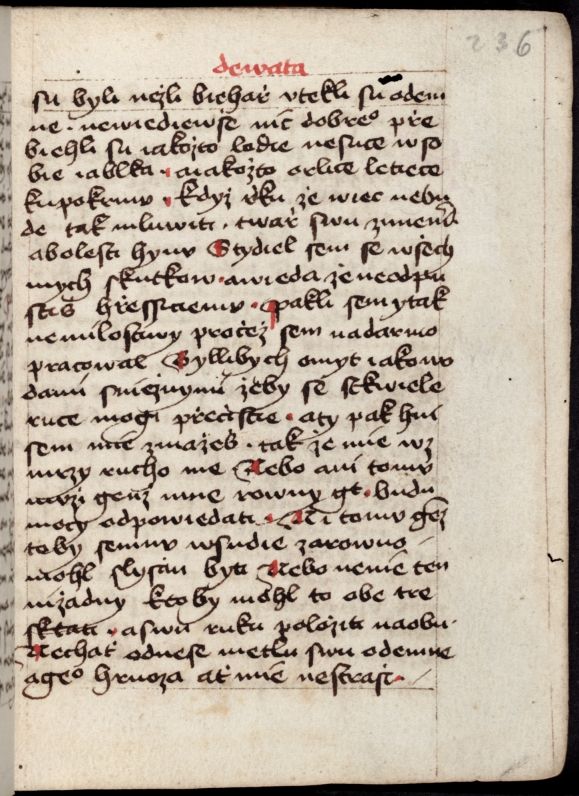 236
dewata
su byli nezli biehař vtekli su odem
ne . newiediewse nic dobreo pře
biehli su iakożto lodie nesuce w so
bie iablka . a iakożto orlice letiece
ku pokrmu . kdyż řku że wiec nebu
de tak mluwiti . twař swu zmieniu
a bolesti hynu Stydiel sem se wssech
mych skutkow . a wieda że neodpu
stiss hřessiciemu . Pakli sem y tak
nemilostiwy proczeż sem nadarmo
pracowal Bylli bych omyt iakowo
dami snieżnymi żeby se stkwiele
ruce mogi přeciste . a ty pak hni
sem mie zmażess . tak że mie wz
mrzy rucho me Nebo ani tomu
muzi genż mne rowny gt . budu
mocy odpowiedati . Ani tomu geż
toby semnu w sudie zarowno
mohl slyssan byti Nebo nenie ten
nizadny kto by mohl to obe tre
sktati . a swu ruku polożiti na obu .
Nechať odnese metlu swu odemne
a geo hruoza ať mie nestrassi .